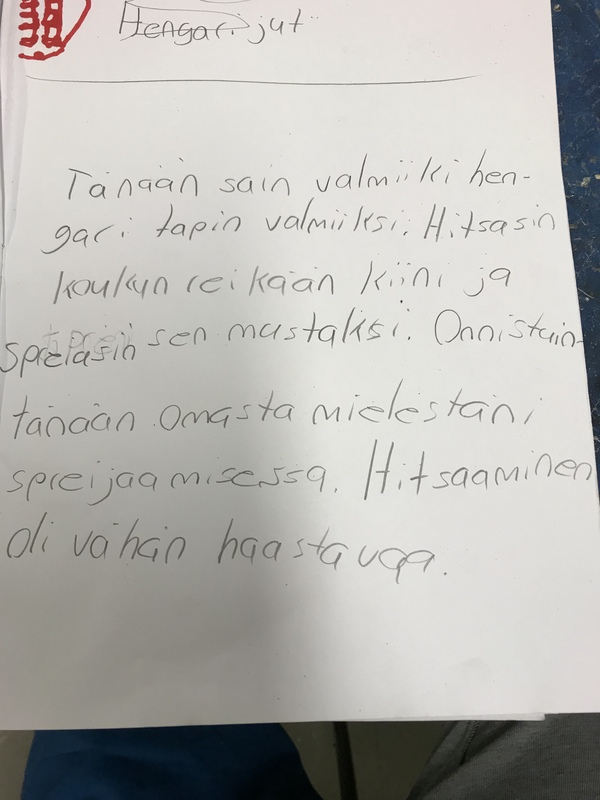 Hengari jut
Tänään sain valmiiki hen-
gari tapin valmiiksi. Hitsasin
koukun reikään kiini ja
spreiasin sen mustaksi. Onnistuin
tänään omasta mielestäni
spreijaamisessa. Hitsaaminen
oli vähän haastavaa.